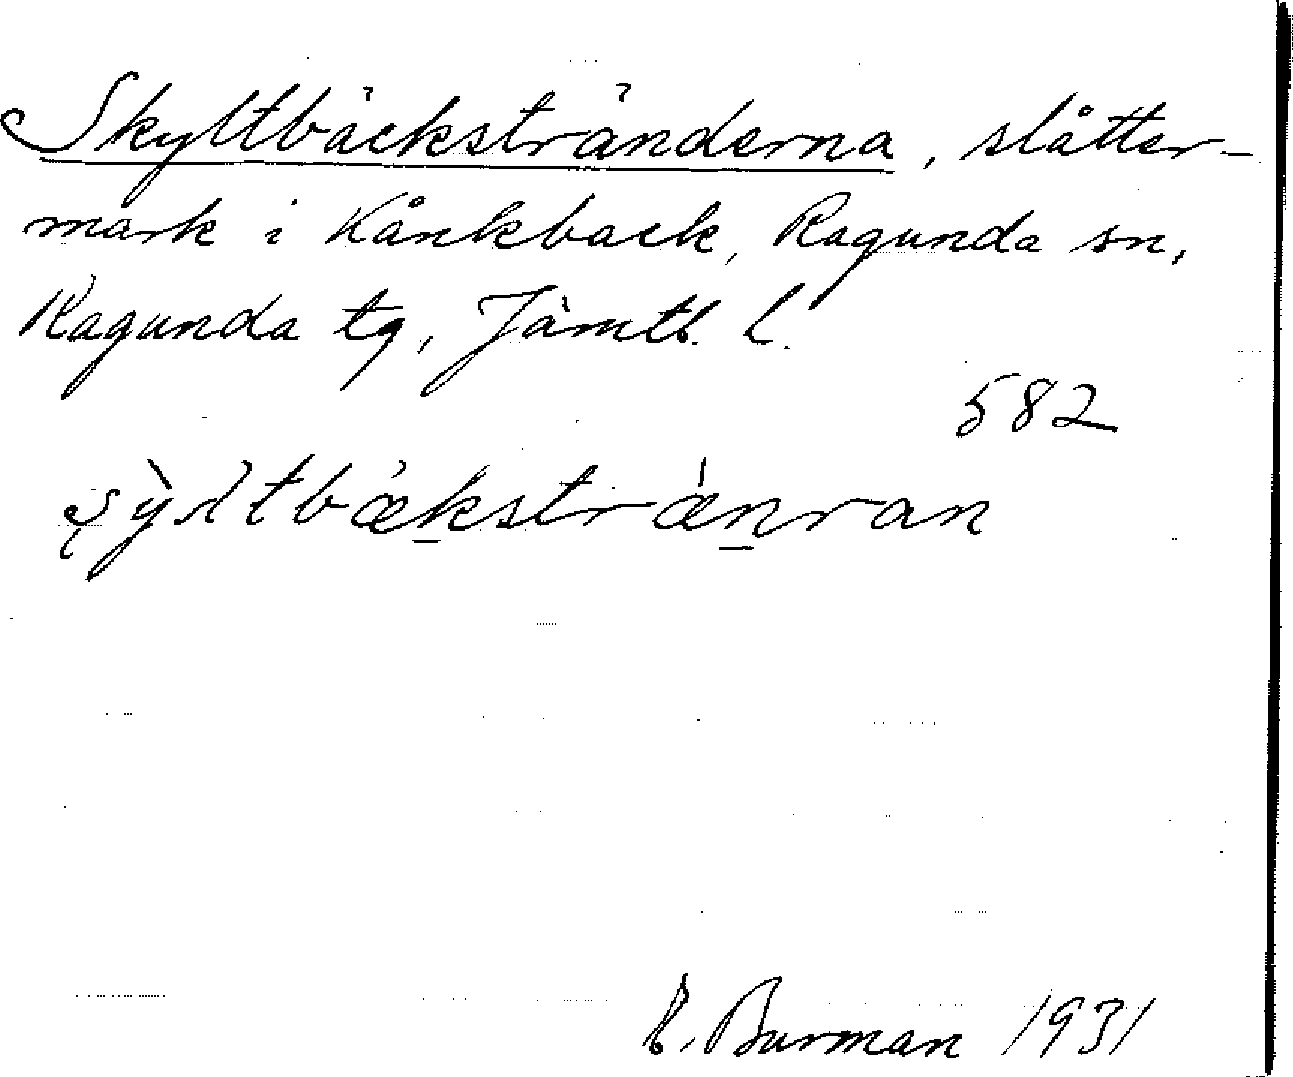 Skyltbäckstränderna, slåtter-
mark i Kånkback, Ragunda sn,
Ragunda tg, Jämtl. l.
582
R. Burman 1931